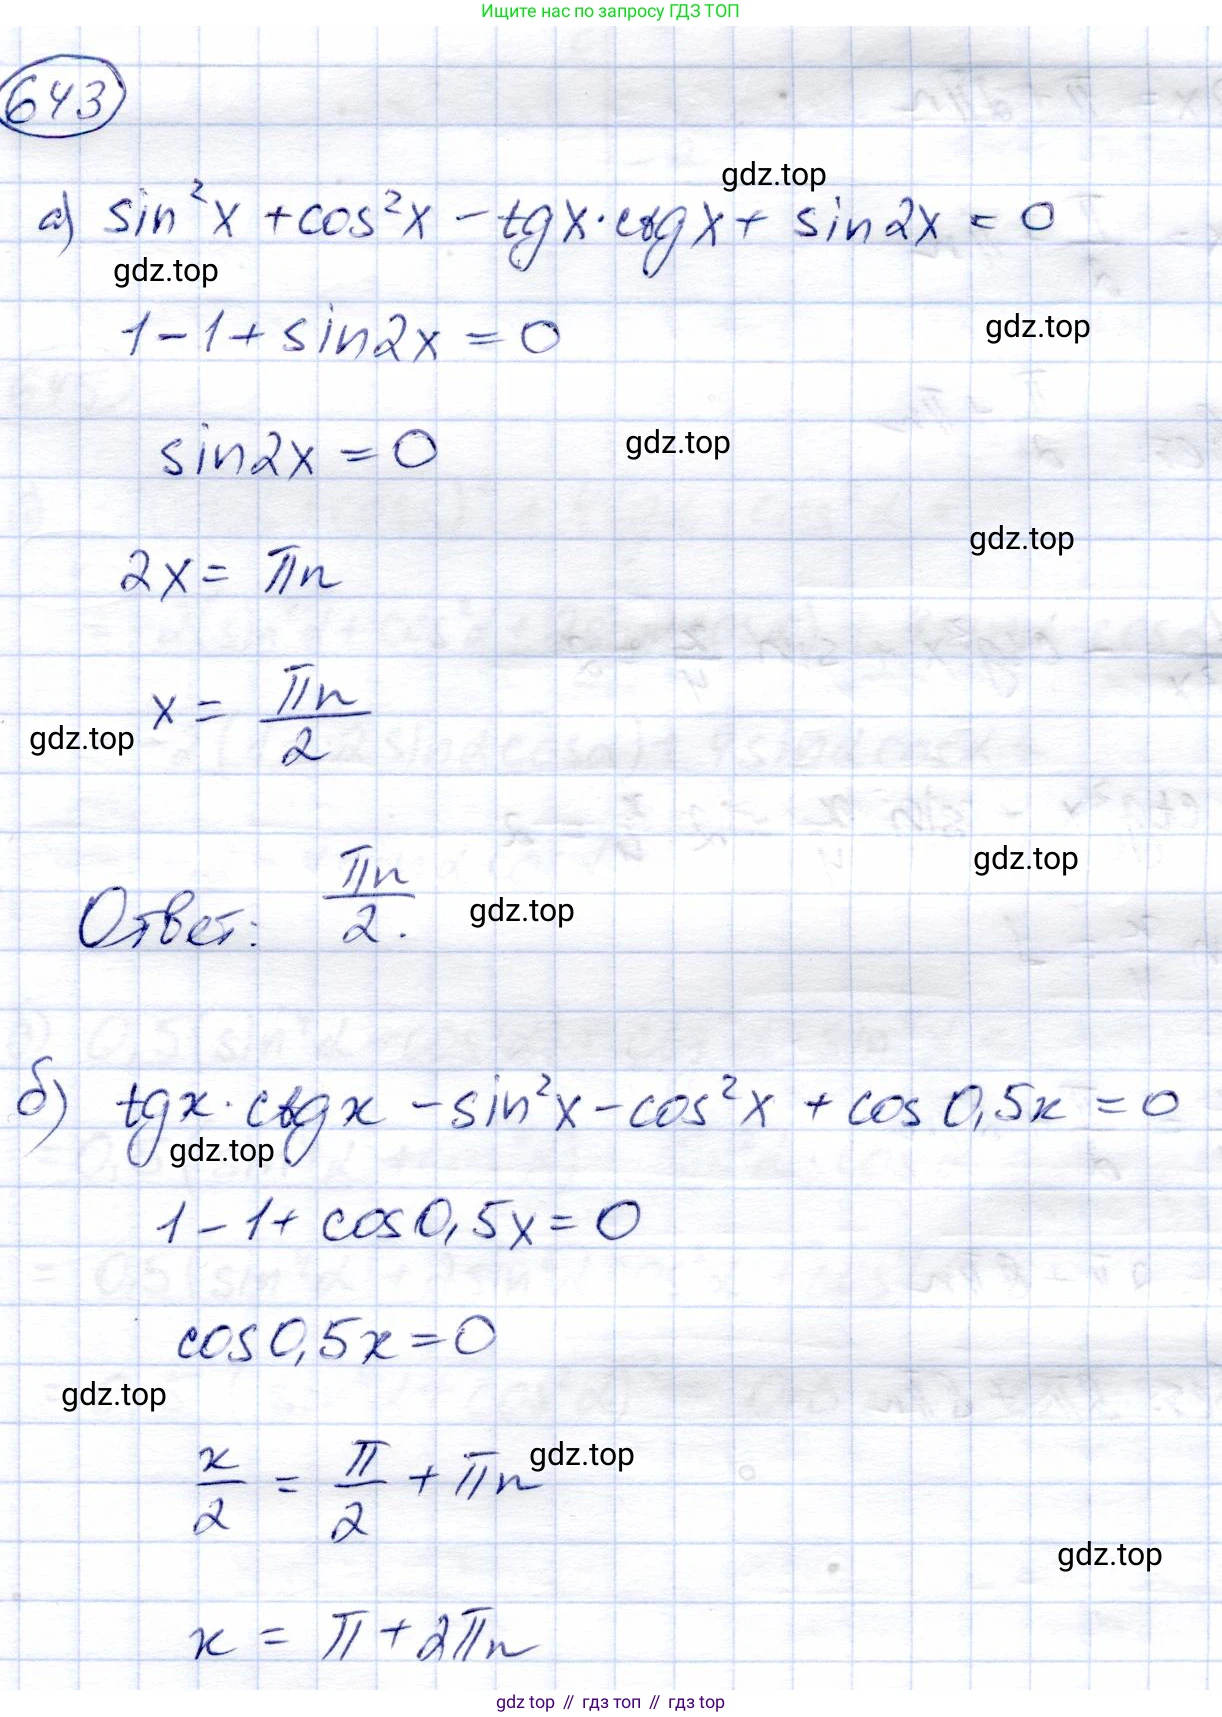 Ищите нас по запросу ГДЗ ТОП
643
gdz.top
а) sin²x + cos²x - tgx·ctgx + sin2x = 0
gdz.top
1 - 1 + sin2x = 0
gdz.top
sin2x = 0
gdz.top
gdz.top
2x = πn
x = πn/2
gdz.top
gdz.top
Ответ: πn/2.
gdz.top
б) tgx·ctgx - sin²x - cos²x + cos0,5x = 0
gdz.top
1 - 1 + cos0,5x = 0
cos0,5x = 0
gdz.top
x/2 = π/2 + πn
gdz.top
gdz.top
x = π + 2πn
gdz.top // гдз топ // гдз top